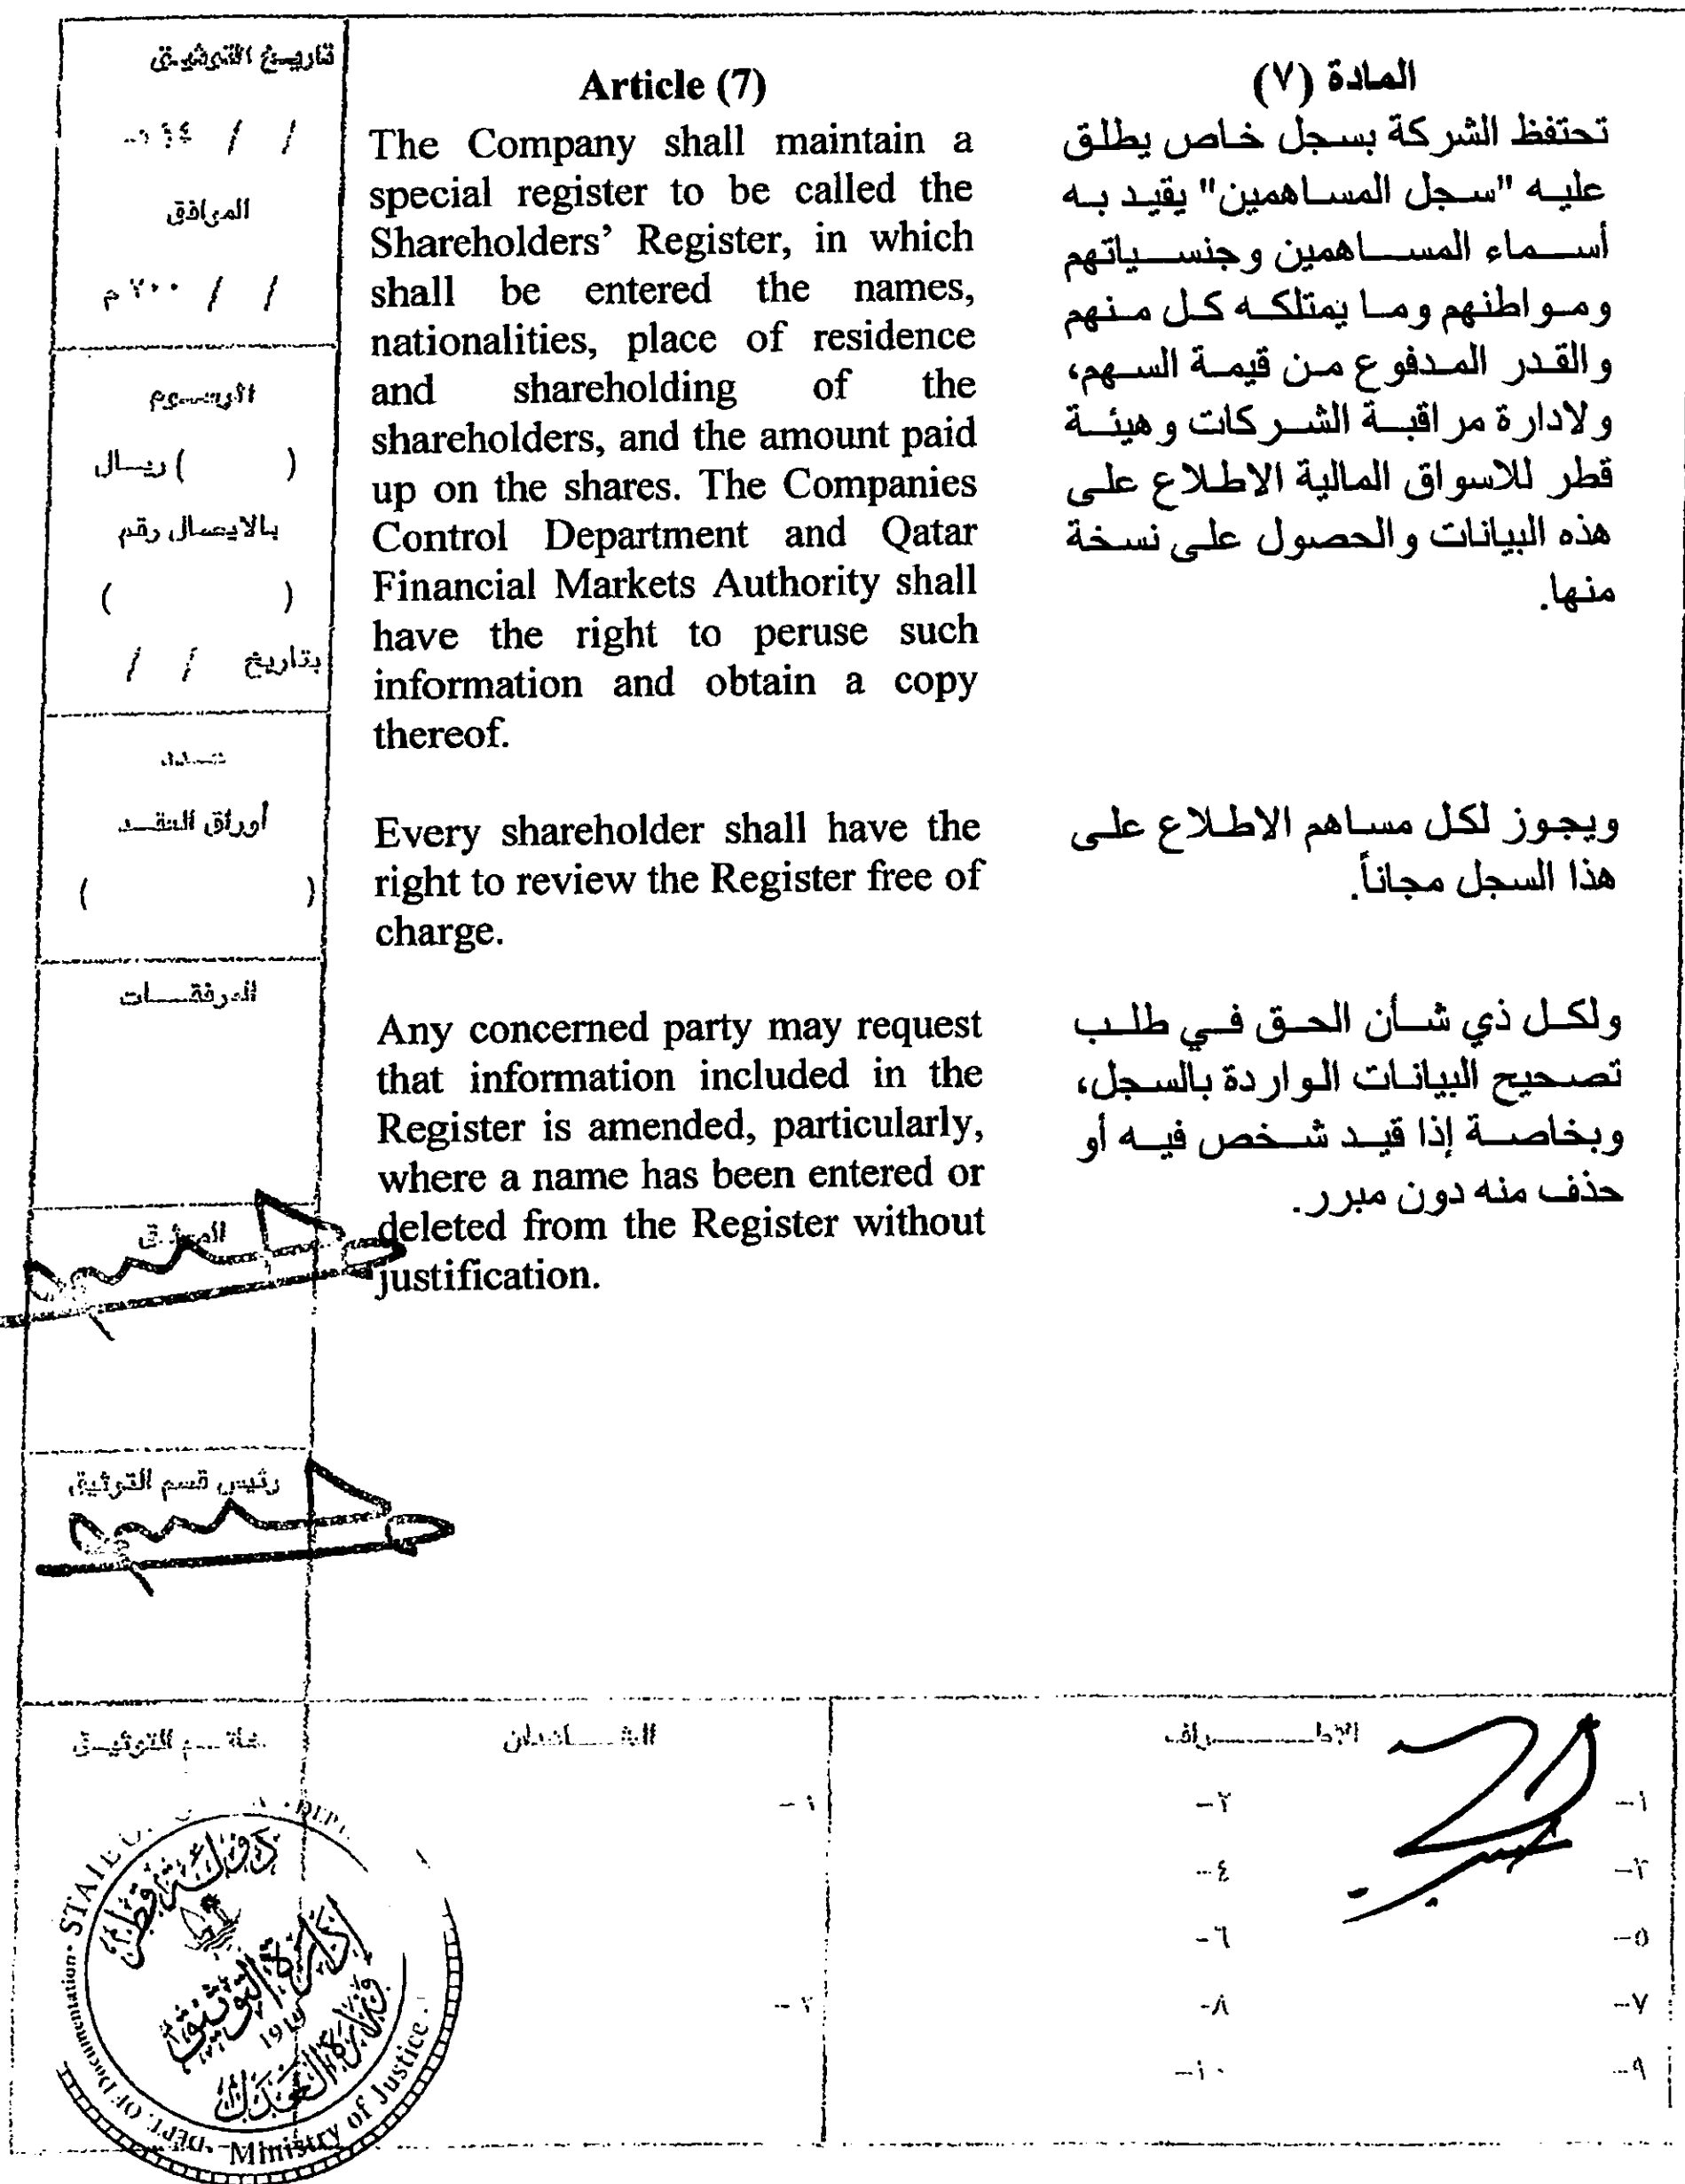 تاريخ التوثيق
/ / ١٤هـ
الموافق
/ / ٢٠٠م
الرسوم
( ) ريال
بالايصال رقم
( )
بتاريخ / /
عدد
أوراق العقد
( )
المرفقات
الموثق
رئيس قسم التوثيق
Article (7)
The Company shall maintain a
special register to be called the
Shareholders’ Register, in which
shall be entered the names,
nationalities, place of residence
and shareholding of the
shareholders, and the amount paid
up on the shares. The Companies
Control Department and Qatar
Financial Markets Authority shall
have the right to peruse such
information and obtain a copy
thereof.
Every shareholder shall have the
right to review the Register free of
charge.
Any concerned party may request
that information included in the
Register is amended, particularly,
where a name has been entered or
deleted from the Register without
justification.
المادة (٧)
تحتفظ الشركة بسجل خاص يطلق
عليه "سجل المساهمين" يقيد به
أسماء المساهمين وجنسياتهم
ومواطنهم وما يمتلكه كل منهم
والقدر المدفوع من قيمة السهم،
ولادارة مراقبة الشركات وهيئة
قطر للاسواق المالية الاطلاع على
هذه البيانات والحصول على نسخة
منها.
ويجوز لكل مساهم الاطلاع على
هذا السجل مجاناً.
ولكل ذي شأن الحق في طلب
تصحيح البيانات الواردة بالسجل،
وبخاصة إذا قيد شخص فيه أو
حذف منه دون مبرر.
الاطراف
١-
٢-
٣-
٤-
٥-
٦-
٧-
٨-
٩-
١٠-
الشاهدان
١-
٢-
خاتم التوثيق
دولة قطر
إدارة التوثيق
وزارة العدل
DEPT. OF Documentation
STATE
DEPT.
Ministry of Justice